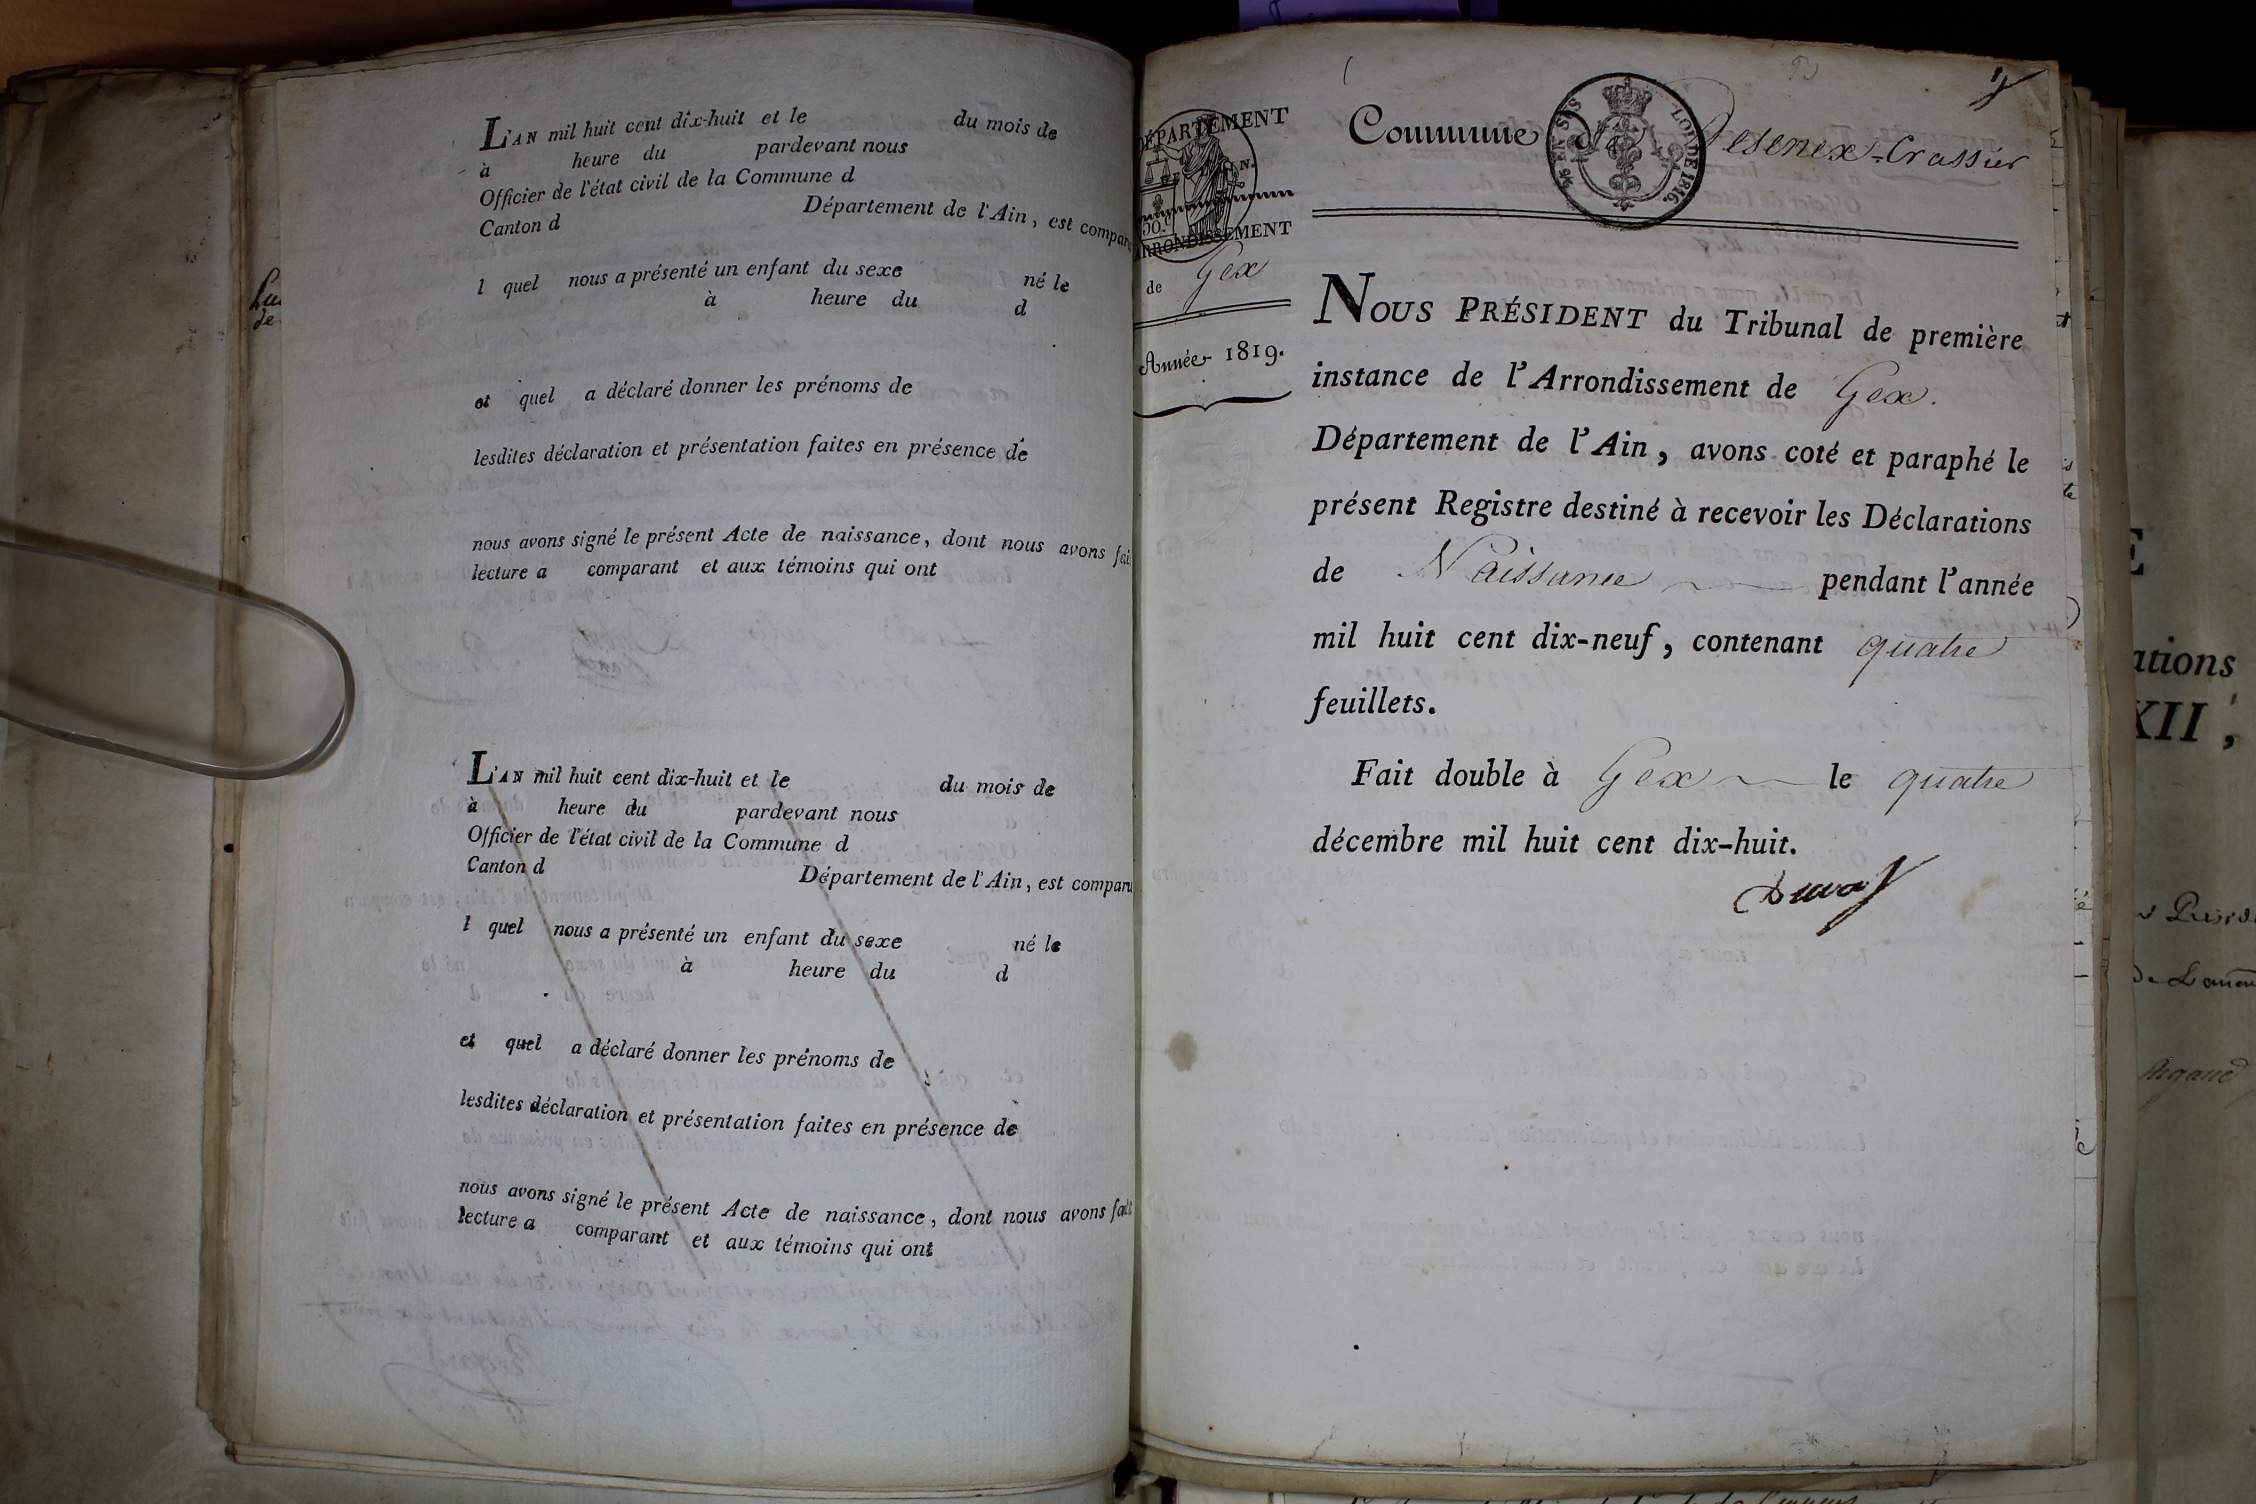 L'AN mil huit cent dix-huit et le du mois de
à heure du pardevant nous
Officier de l'état civil de la Commune d
Canton d Département de l'Ain, est comparu
l quel nous a présenté un enfant du sexe né le
à heure du d
et quel a déclaré donner les prénoms de
lesdites déclaration et présentation faites en présence de
nous avons signé le présent Acte de naissance, dont nous avons fait
lecture a comparant et aux témoins qui ont
L'AN mil huit cent dix-huit et le du mois de
à heure du pardevant nous
Officier de l'état civil de la Commune d
Canton d Département de l'Ain, est comparu
l quel nous a présenté un enfant du sexe né le
à heure du d
et quel a déclaré donner les prénoms de
lesdites déclaration et présentation faites en présence de
nous avons signé le présent Acte de naissance, dont nous avons fait
lecture a comparant et aux témoins qui ont
DÉPARTEMENT
DE L'AIN.
50.c
ARRONDISSEMENT
de Gex
Année 1819.
Commune de Desenex-Crassier
LOI DE 1816.
NOUS PRÉSIDENT du Tribunal de première
instance de l'Arrondissement de Gex.
Département de l'Ain, avons coté et paraphé le
présent Registre destiné à recevoir les Déclarations
de Naissance pendant l'année
mil huit cent dix-neuf, contenant quatre
feuillets.
Fait double à Gex le quatre
décembre mil huit cent dix-huit.
ations
XII,